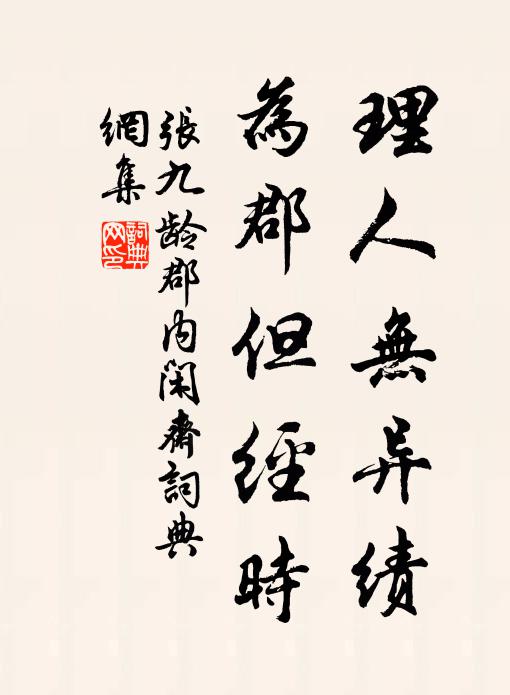 理人無异绩
為郡但經時
張九龄郡内閑齋詞典
網集
詞典網印